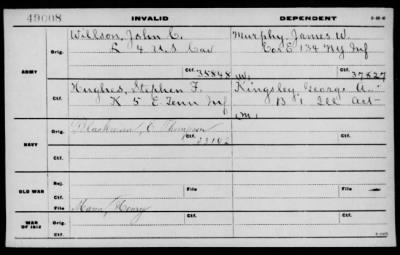 49008 INVALID DEPENDENT
Willson, John C. Murphy, James W.
Orig. L 4 U.S. Cav Co. E 134 NY Inf
ARMY Ctf. 35848 Ctf. 37827
Hughes, Stephen F. Kingsley, George A.
Ctf. K 5 E Tenn Inf B 1 Ill Art
Orig. Blackman, C. Thompson
NAVY Ctf.
Ctf.
Rej.
OLD WAR Ctf. File File
Mann, Henry
WAR OF 1812 Orig. Ctf. Ctf.
Ctf.